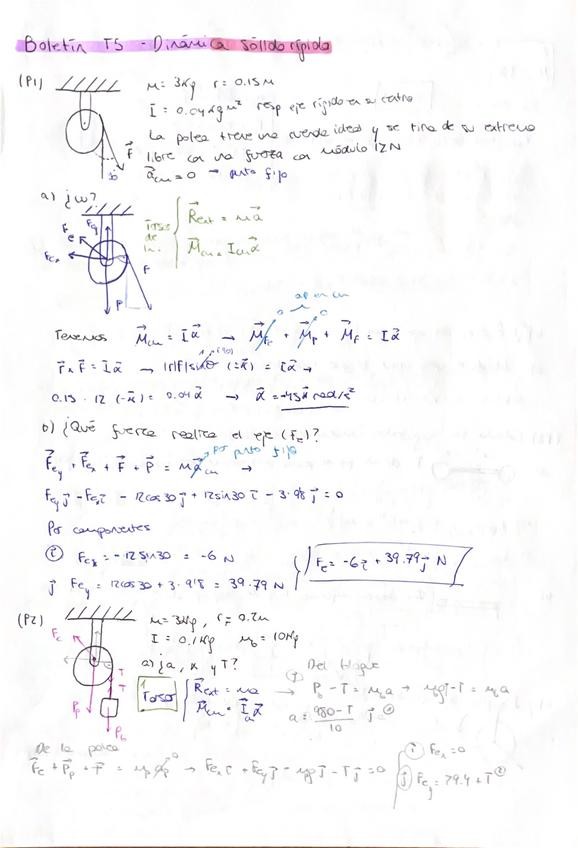 Boletín T5 - Dinámica sólido rígido
(P1) M = 3Kg r = 0.15 M
I = 0.04 Kg m² resp eje rígido en su centro
La polea tiene una cuerda ideal y se tira de su extremo
libre con una fuerza con módulo 12N
a⃗cm = 0 → punto fijo
F⃗
30
a) ¿ω?
R⃗ext = m a⃗
M⃗cm = Icm α⃗
Tenemos M⃗cm = I α⃗ → M⃗Fc + M⃗P + M⃗F = I α⃗
r⃗ x F⃗ = I α⃗ → |r||F| sin θ (-k⃗) = I α⃗ →
0.15 · 12 (-k⃗) = 0.04 α⃗ → α⃗ = -45 k⃗ rad/s²
b) ¿Qué fuerza realiza el eje (Fe)?
por punto fijo
F⃗cy + F⃗cx + F⃗ + P⃗ = m a⃗cm →
Fcy j⃗ - Fcx i⃗ - 12cos30 j⃗ + 12sin30 i⃗ - 3·9.8 j⃗ = 0
Por componentes
i⃗ Fcx = -12 sin30 = -6 N
j⃗ Fcy = 12cos30 + 3·9.8 = 39.79 N
Fc = -6 i⃗ + 39.79 j⃗ N
(P2) M = 3Kg, r = 0.2m
I = 0.1Kg Mb = 10Kg
a) ¿a, α y T?
Del bloque
R⃗ext = ma
M⃗cm = I α⃗
→ Pb - T = mb a → mg j⃗ - T = mb a
a = 980 - T / 10 j⃗
De la polea
F⃗c + P⃗p + T⃗ = mp a⃗p → Fcx i⃗ + Fcy j⃗ - mg j⃗ - T j⃗ = 0
i Fcx = 0
j Fcy = 29.4 + T